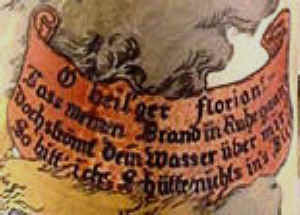 O heil'ger Florian! –
Lass meinen Brand in Ruhe
doch strömt dein Wasser über mir
So bitt' ich's Schütte nichts in's